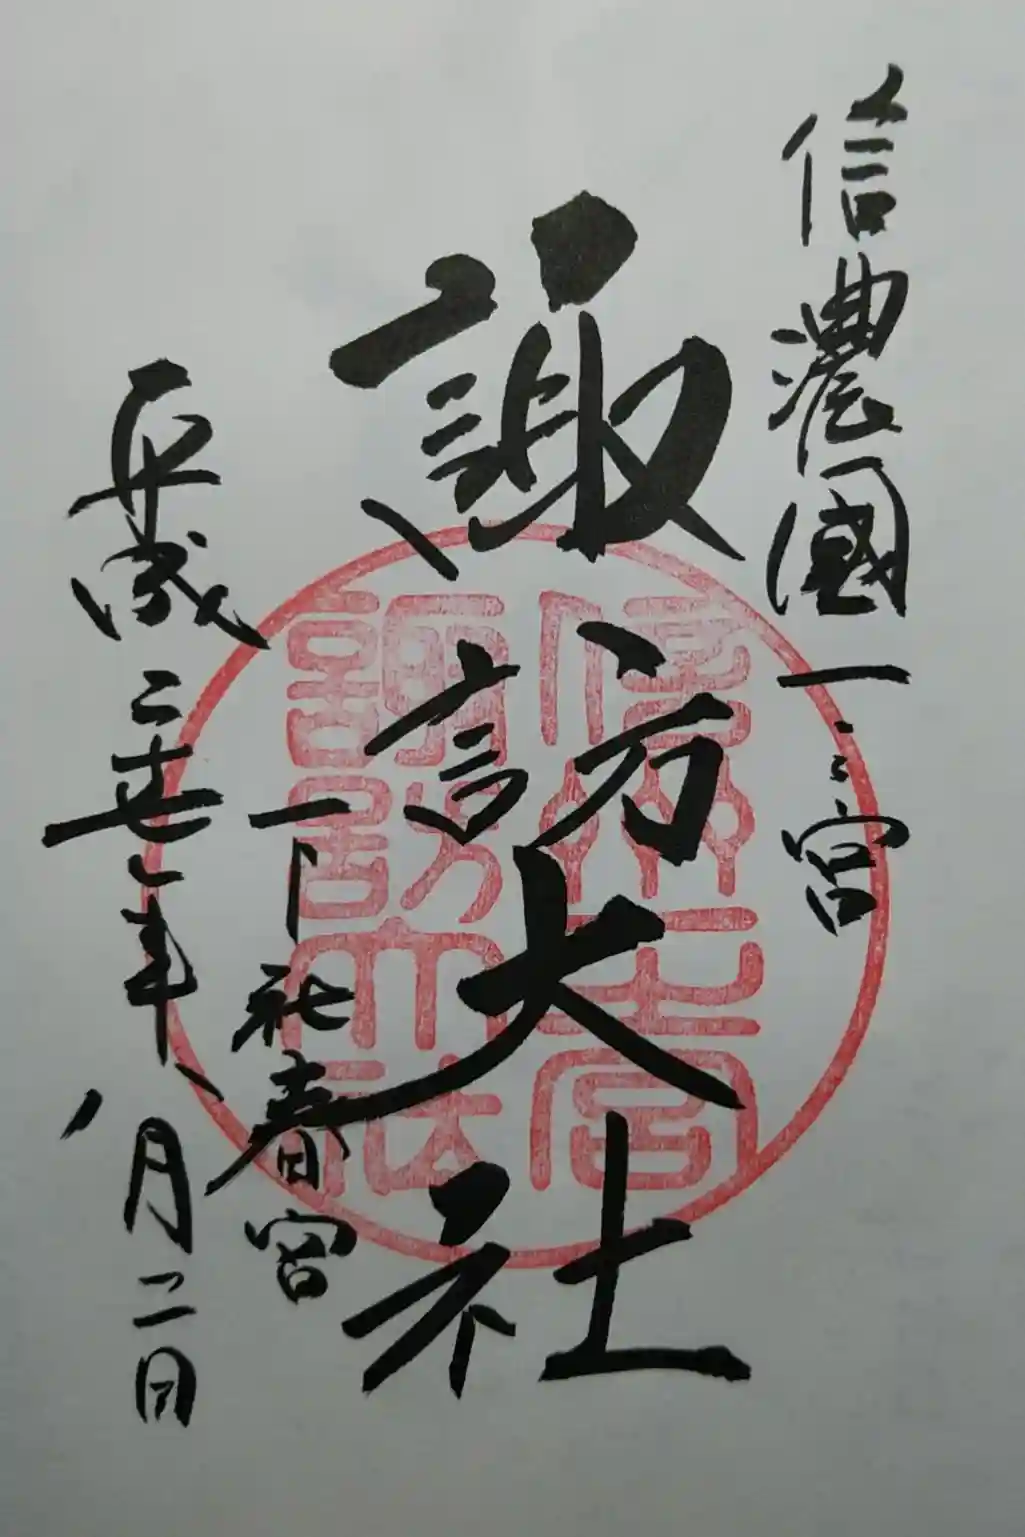 信濃國一之宮
諏訪大社
下社春宮
平成二十七年八月二日
信州一之宮
諏訪大社